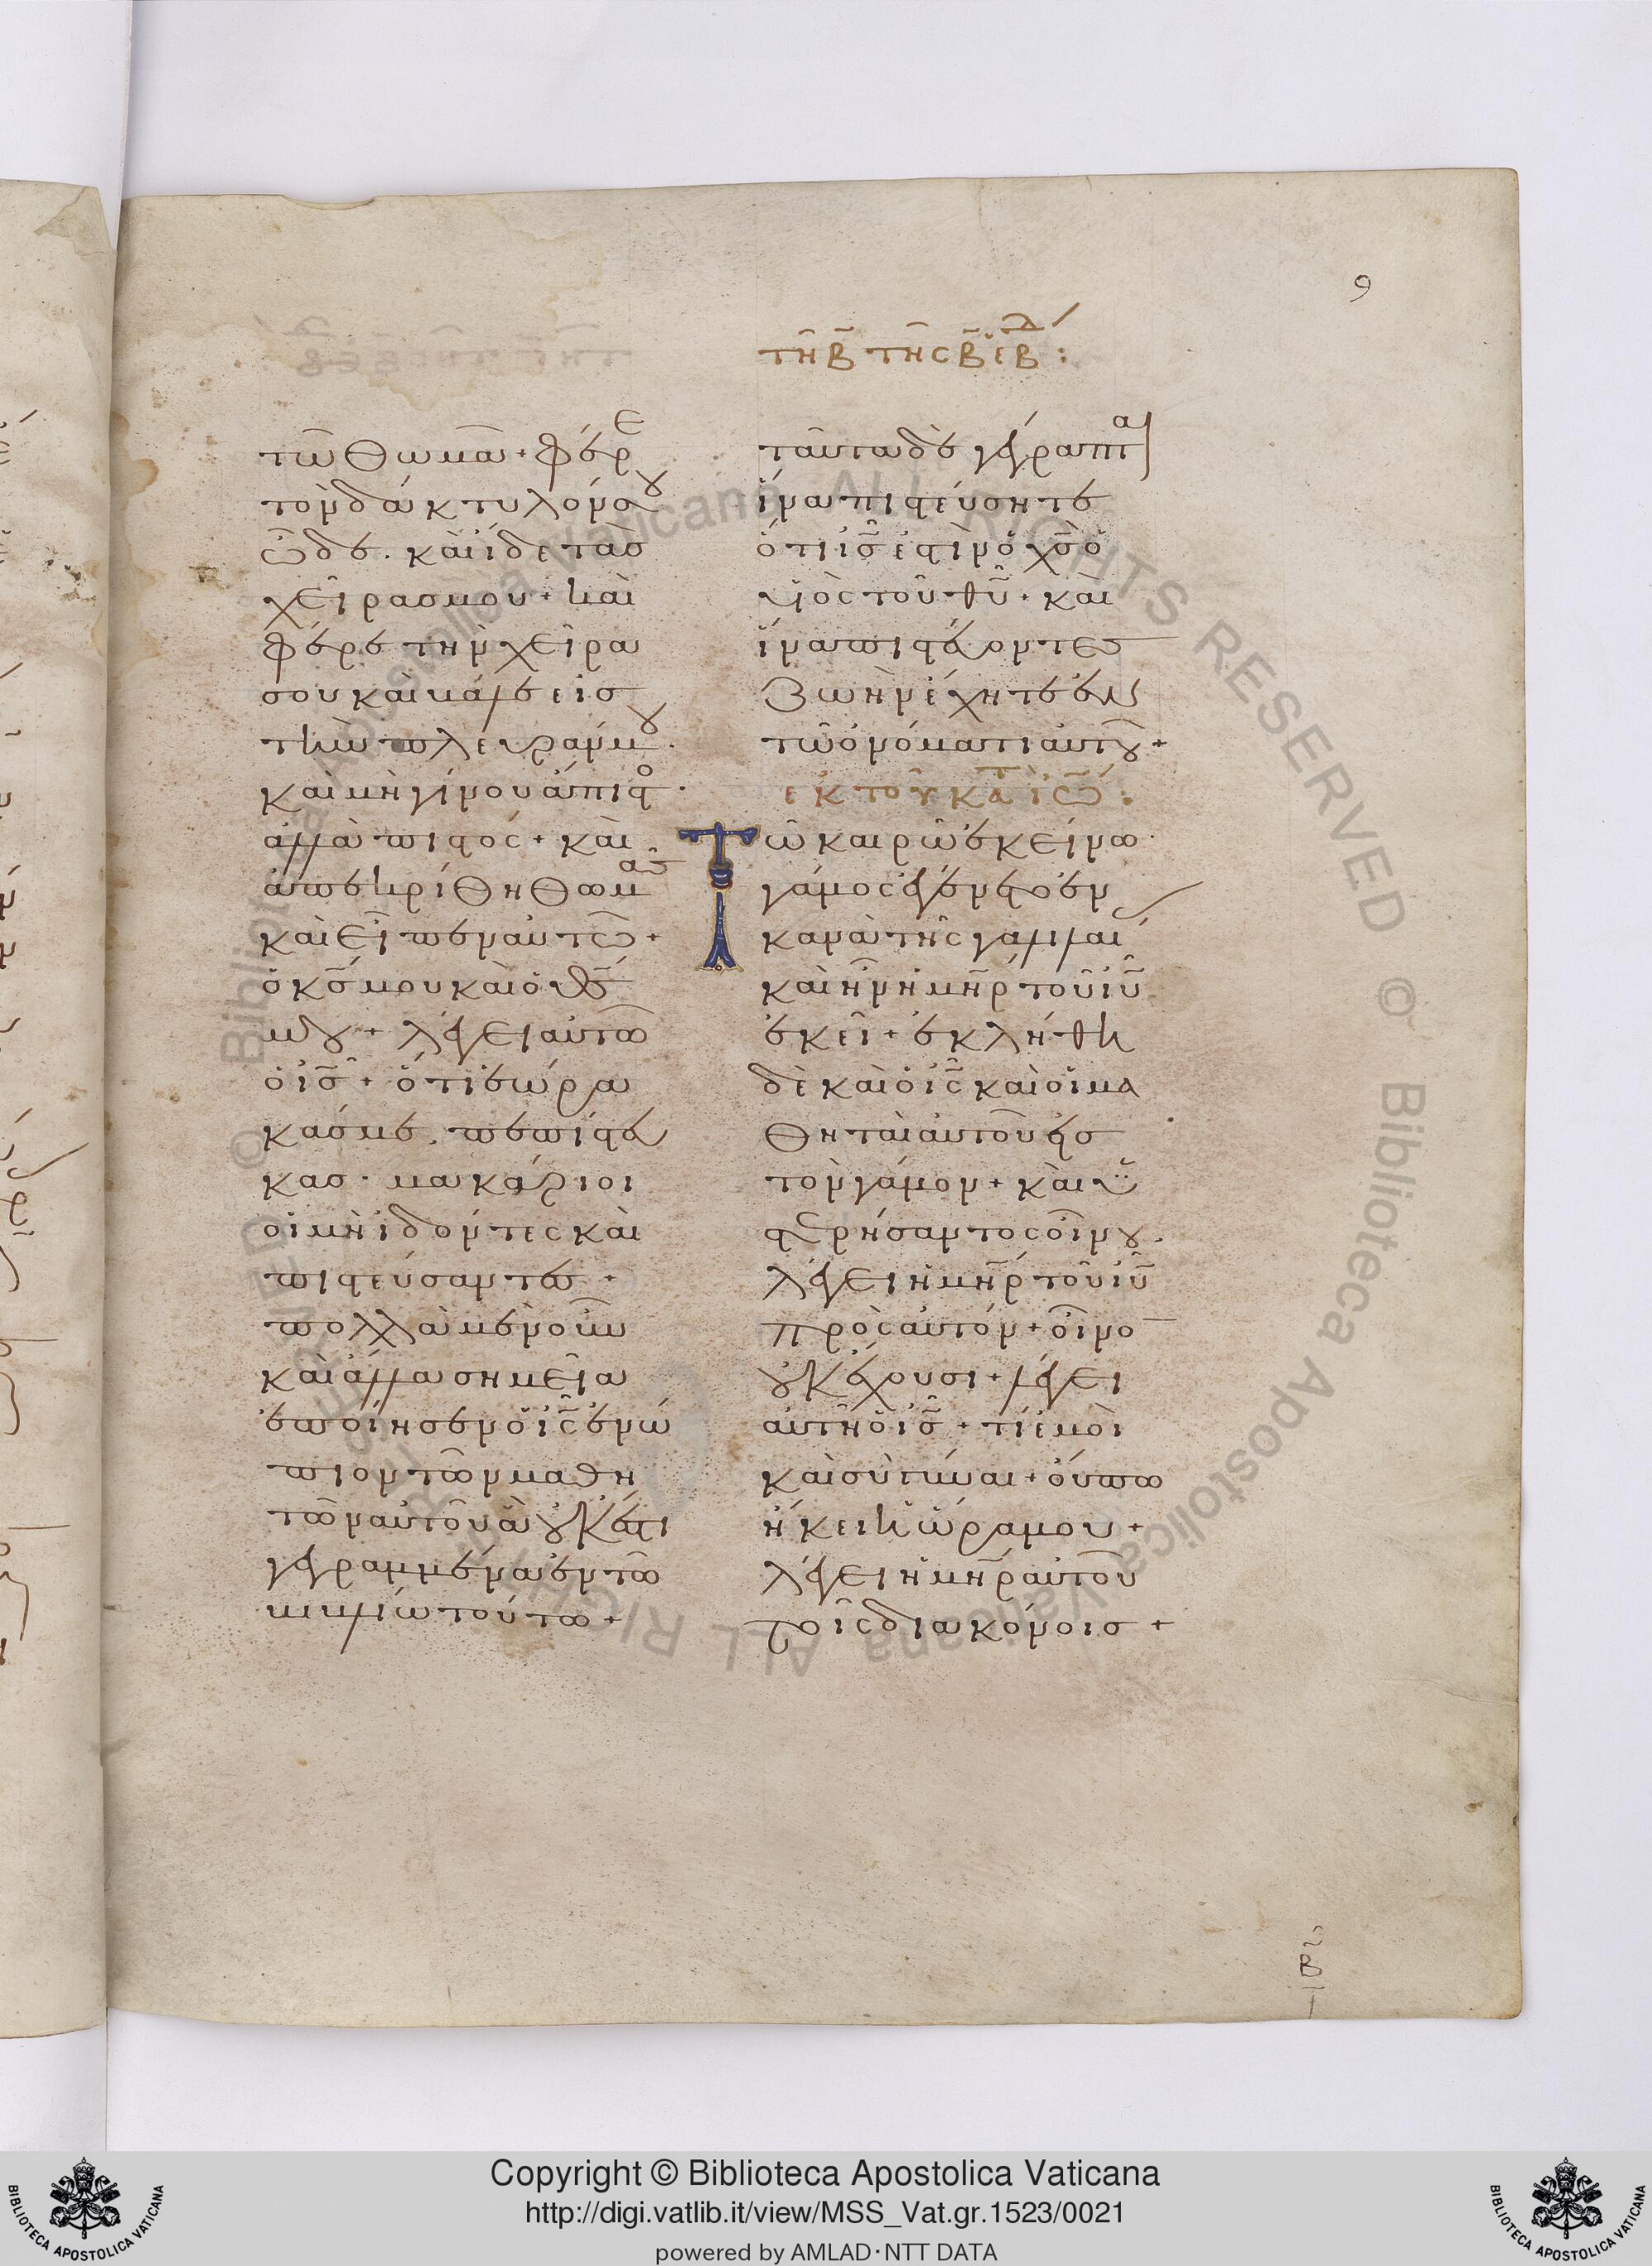 9
τῶ Θωμᾶ + φέρε
τὸν δάκτυλόν σου
ὧδε · καὶ ἴδε τὰσ
χεῖρασ μου + καὶ
φέρε τὴν χεῖρα
σου καὶ βάλε εἰσ
τὴν πλευράν μου ·
καὶ μὴ γίνου ἄπιστο ·
ἀλλὰ πιστός + καὶ
ἀπεκρίθη Θωμᾶσ
καὶ εἶπεν αὐτῶ +
ὁ κσ̄ μου καὶ ὁ θσ̄
μου + λέγει αὐτῶ
ὁ ισ̄ + ὅτι ἑώρα
κάσ με, πεπίστευ
κασ · μακάριοι
οἱ μὴ ἰδόντες καὶ
πιστεύσαντεσ +
πολλὰ μὲν οὖν
καὶ ἄλλα σημεῖα
ἐποίησεν ὁ ις̄ ἐνώ
πιον τῶν μαθη
τῶν αὐτοῦ ἃ οὐκ ἔστι
γεγραμμένα ἐν τῶ
βιβλίω τούτω +
τῆ Β̄ τῆς Β̄ ἑΒδ :
ταῦτα δὲ γέγραπται
ἵνα πιστεύσητε
ὅτι ισ̄ ἐστὶν ὁ χσ̄ ὁ
υἱὸς τοῦ θῡ + καὶ
ἵνα πιστεύοντεσ
ζωὴν ἔχητε ἐν
τῶ ὀνόματι αὐτοῦ +
ἐκ τοῦ κατὰ ἰω̄ :
Τῶ καιρῶ ἐκείνω
γάμος ἐγένετο ἐν
κανὰ τῆς γαλιλαί
καὶ ἦν ἡ μηρ̄ τοῦ ιῡ
ἐκεῖ + ἐκλήθη
δὲ καὶ ὁ ις̄ καὶ οἱ μα
θηταὶ αὐτοῦ εἰσ
τὸν γάμον + καὶ ὑ
στερήσαντος οἴνου ·
λέγει ἡ μηρ̄ τοῦ ιῡ
πρὸς αὐτόν + οἶνο
οὐκ ἔχουσι + λέγει
αὐτῆ ὁ ισ̄ + τί ἐμοὶ
καὶ σὺ γύναι + οὔπω
ἥκει ἡ ὥρα μου +
λέγει ἡ μηρ̄ αὐτοῦ
τοῖς διακόνοισ +
Β
Copyright © Biblioteca Apostolica Vaticana
http://digi.vatlib.it/view/MSS_Vat.gr.1523/0021
powered by AMLAD·NTT DATA